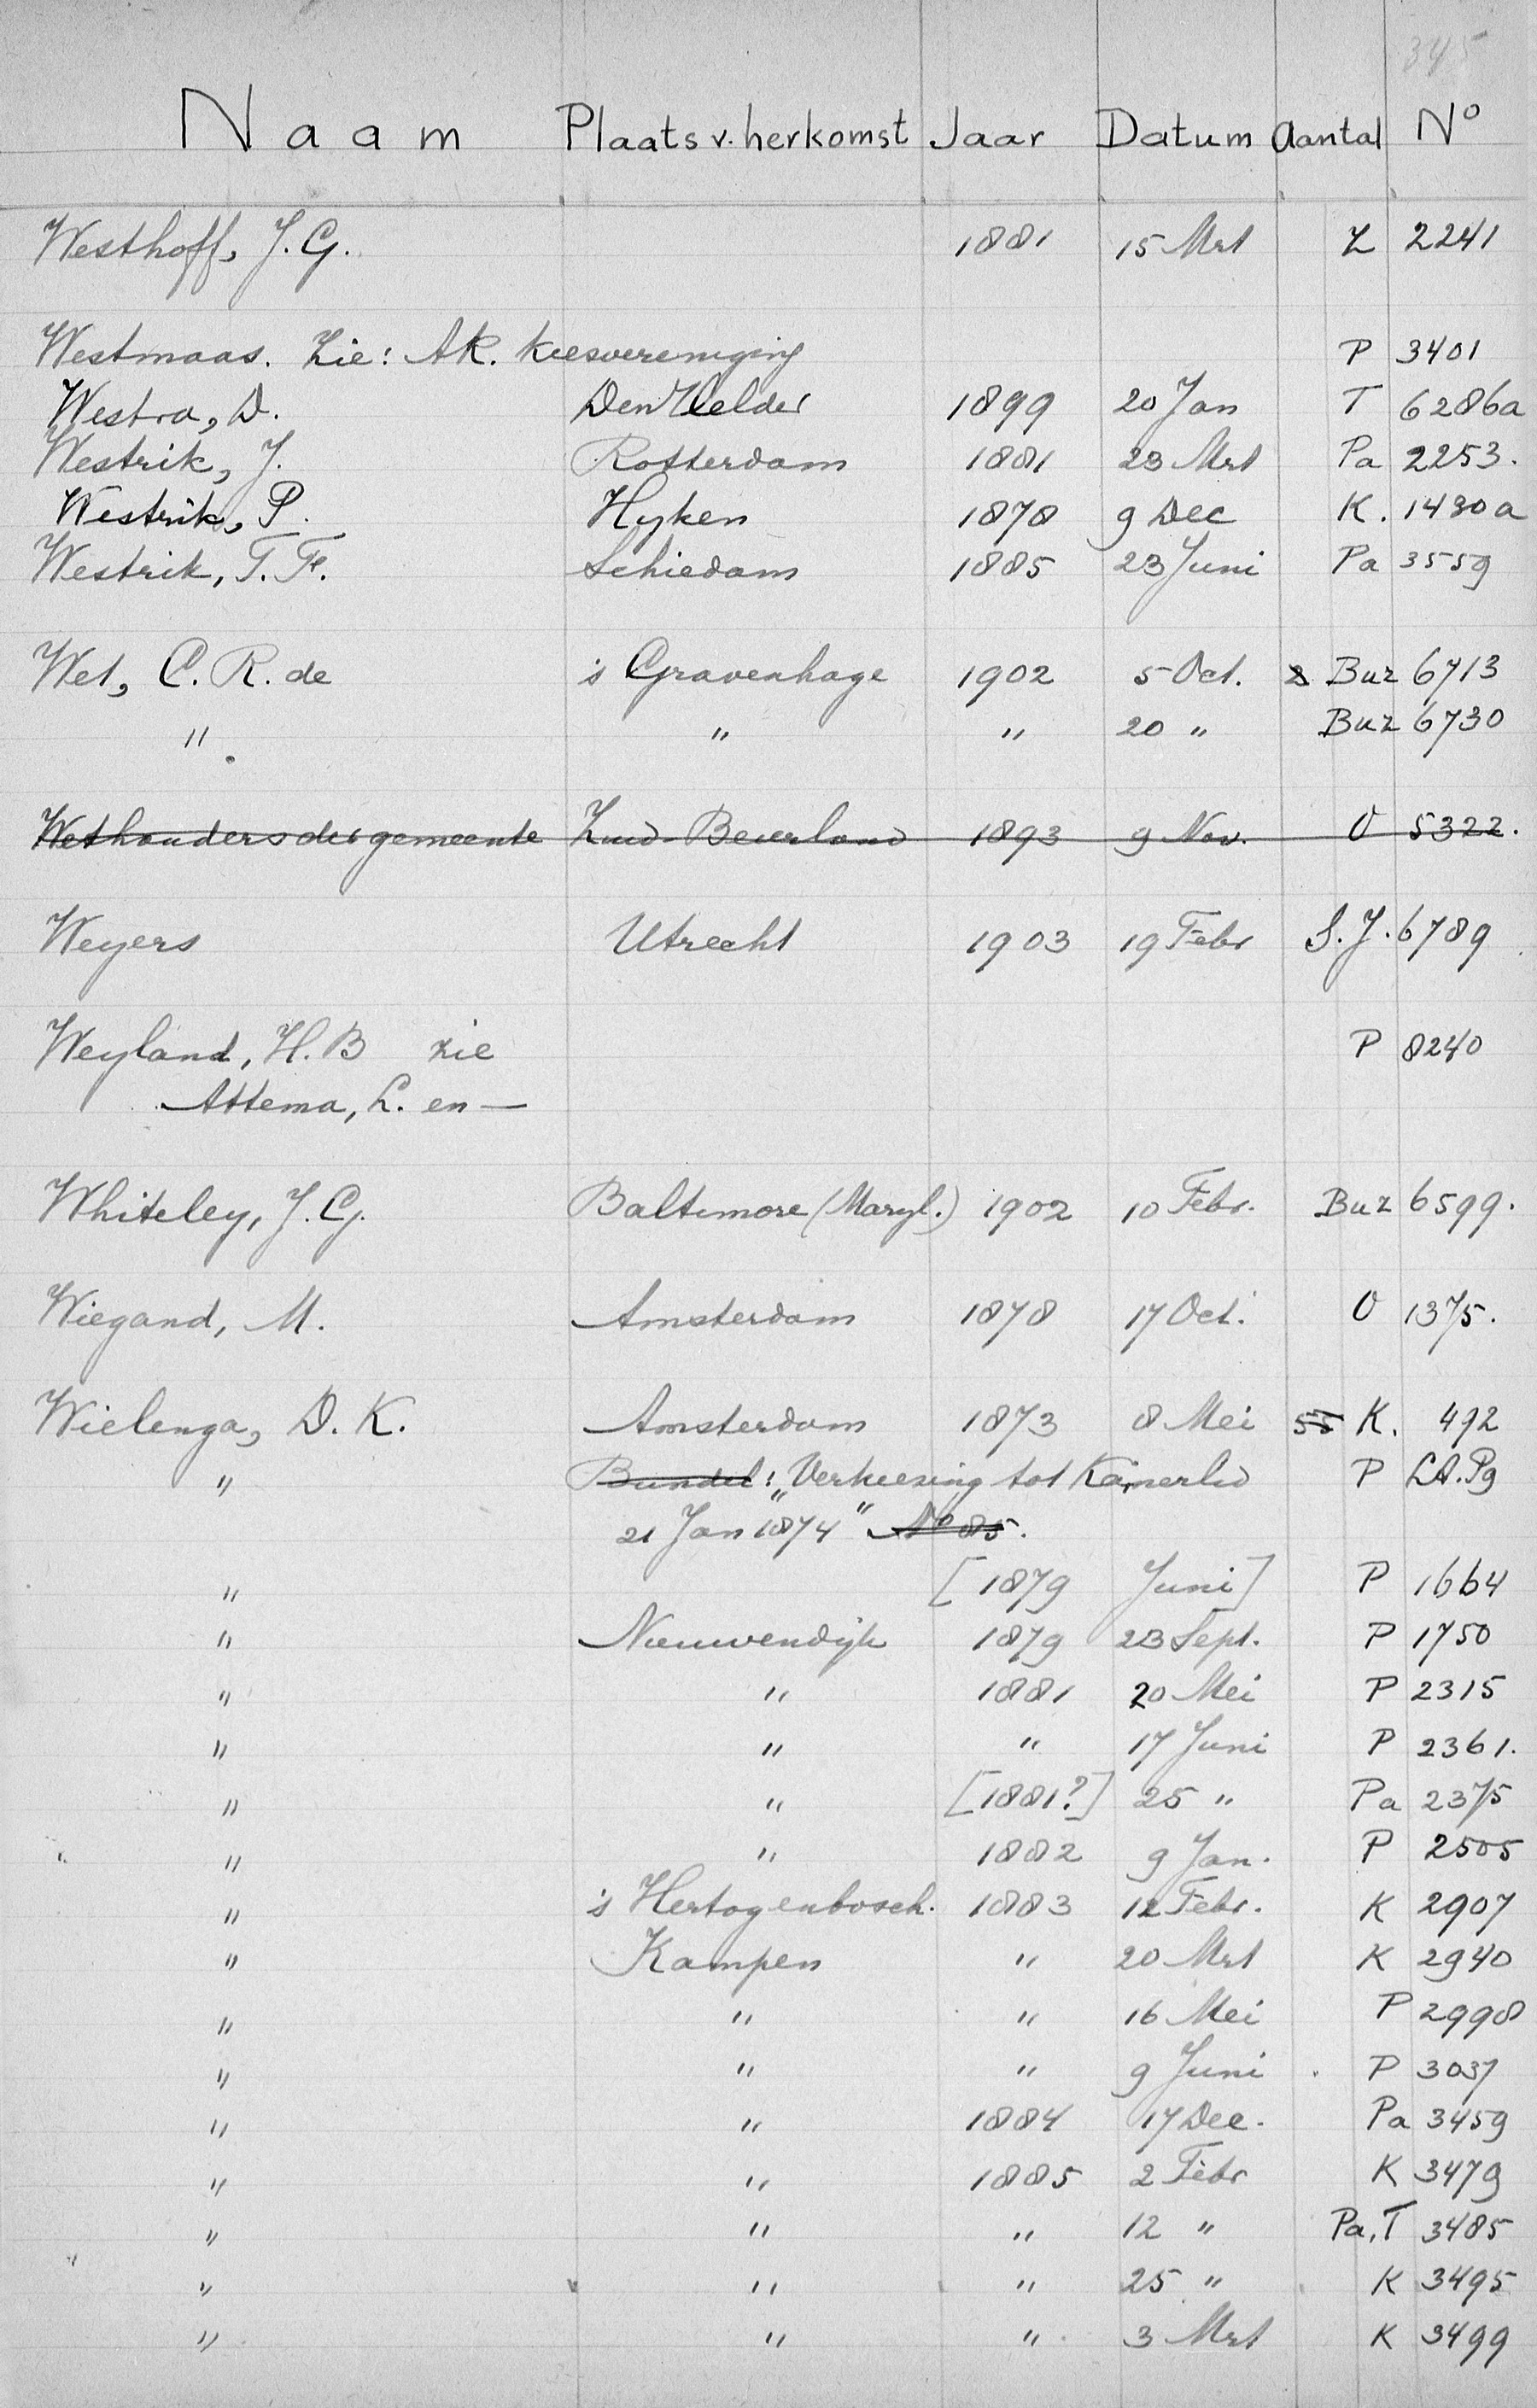 345
Naam Plaats v. herkomst Jaar Datum Aantal No
Westhoff, J. G. 1881 15 Mrt Z 2241
Westmaas. Zie: AR. Kiesvereniging P 3401
Westra, D. Den Helder 1899 20 Jan T 6286a
Westrik, J. Rotterdam 1881 23 Mrt Pa 2253.
Westrik, P. Hyken 1878 9 Dec K. 1430a
Westrik, T. F. Schiedam 1885 23 Juni Pa 3559
Wet, C. R. de 's Gravenhage 1902 5 Oct. Buz 6713
" " " 20 " Buz 6730
Wethouders der gemeente Zuid-Beierland 1893 9 Nov. O 5322.
Weyers Utrecht 1903 19 Febr S. J. 6789
Weyland, H. B zie P 8240
Attema, L. en —
Whiteley, J. G. Baltimore (Maryl.) 1902 10 Febr. Buz 6599.
Wiegand, M. Amsterdam 1878 17 Oct. O 1375.
Wielenga, D. K. Amsterdam 1873 8 Mei 55 K. 492
" Bundel: "Verkiezing tot Kamerlid P Lt. Pg
21 Jan 1874" No 85.
" [1879 Juni] P 1664
" Nieuwendijk 1879 23 Sept. P 1750
" " 1881 20 Mei P 2315
" " " 17 Juni P 2361.
" " [1881?] 25 " Pa 2375
" " 1882 9 Jan. P 2505
" 's Hertogenbosch. 1883 12 Febr. K 2907
" Kampen " 20 Mrt K 2940
" " " 16 Mei P 2998
" " " 9 Juni P 3037
" " 1884 17 Dec. Pa 3459
" " 1885 2 Febr K 3479
" " " 12 " Pa, T 3485
" " " 25 " K 3495
" " " 3 Mrt K 3499